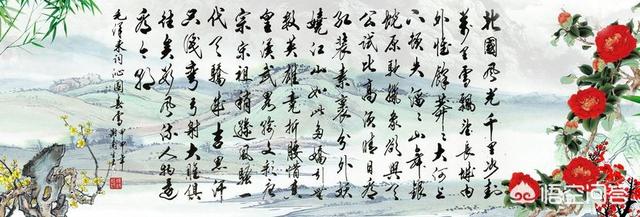 北國風光千里冰封
萬里雪飄望長城内
外惟餘莽々大河上
下頓失滔々山舞銀
蛇原馳蠟象欲與天
公試比高須晴日看
紅裝素裹分外妖
嬈江山如此多嬌引無
數英雄競折腰惜秦
皇漢武略輸文彩唐
宗宋祖稍遜風騷一
代天驕成吉思汗
只識彎弓射大雕俱
往矣數風流人物還
看今朝
毛澤東詞沁園春雪
悟空问答